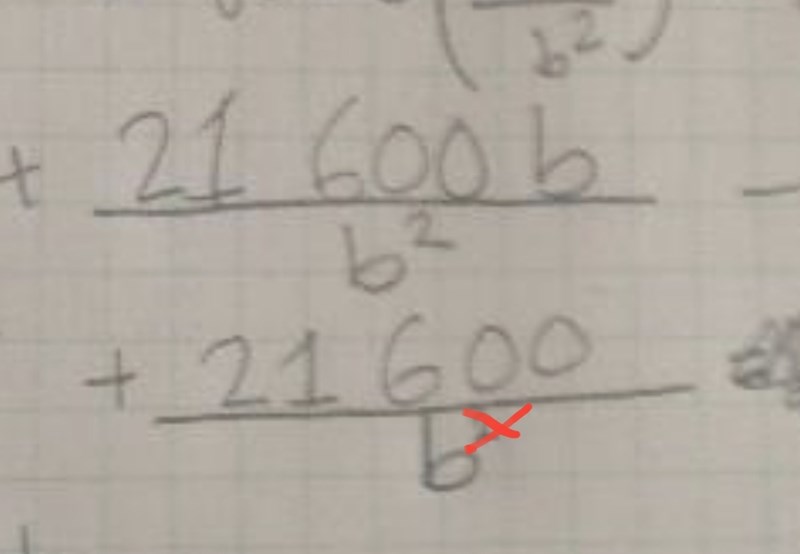 b²)
+ 21 600 b −
b²
+ 21 600
b